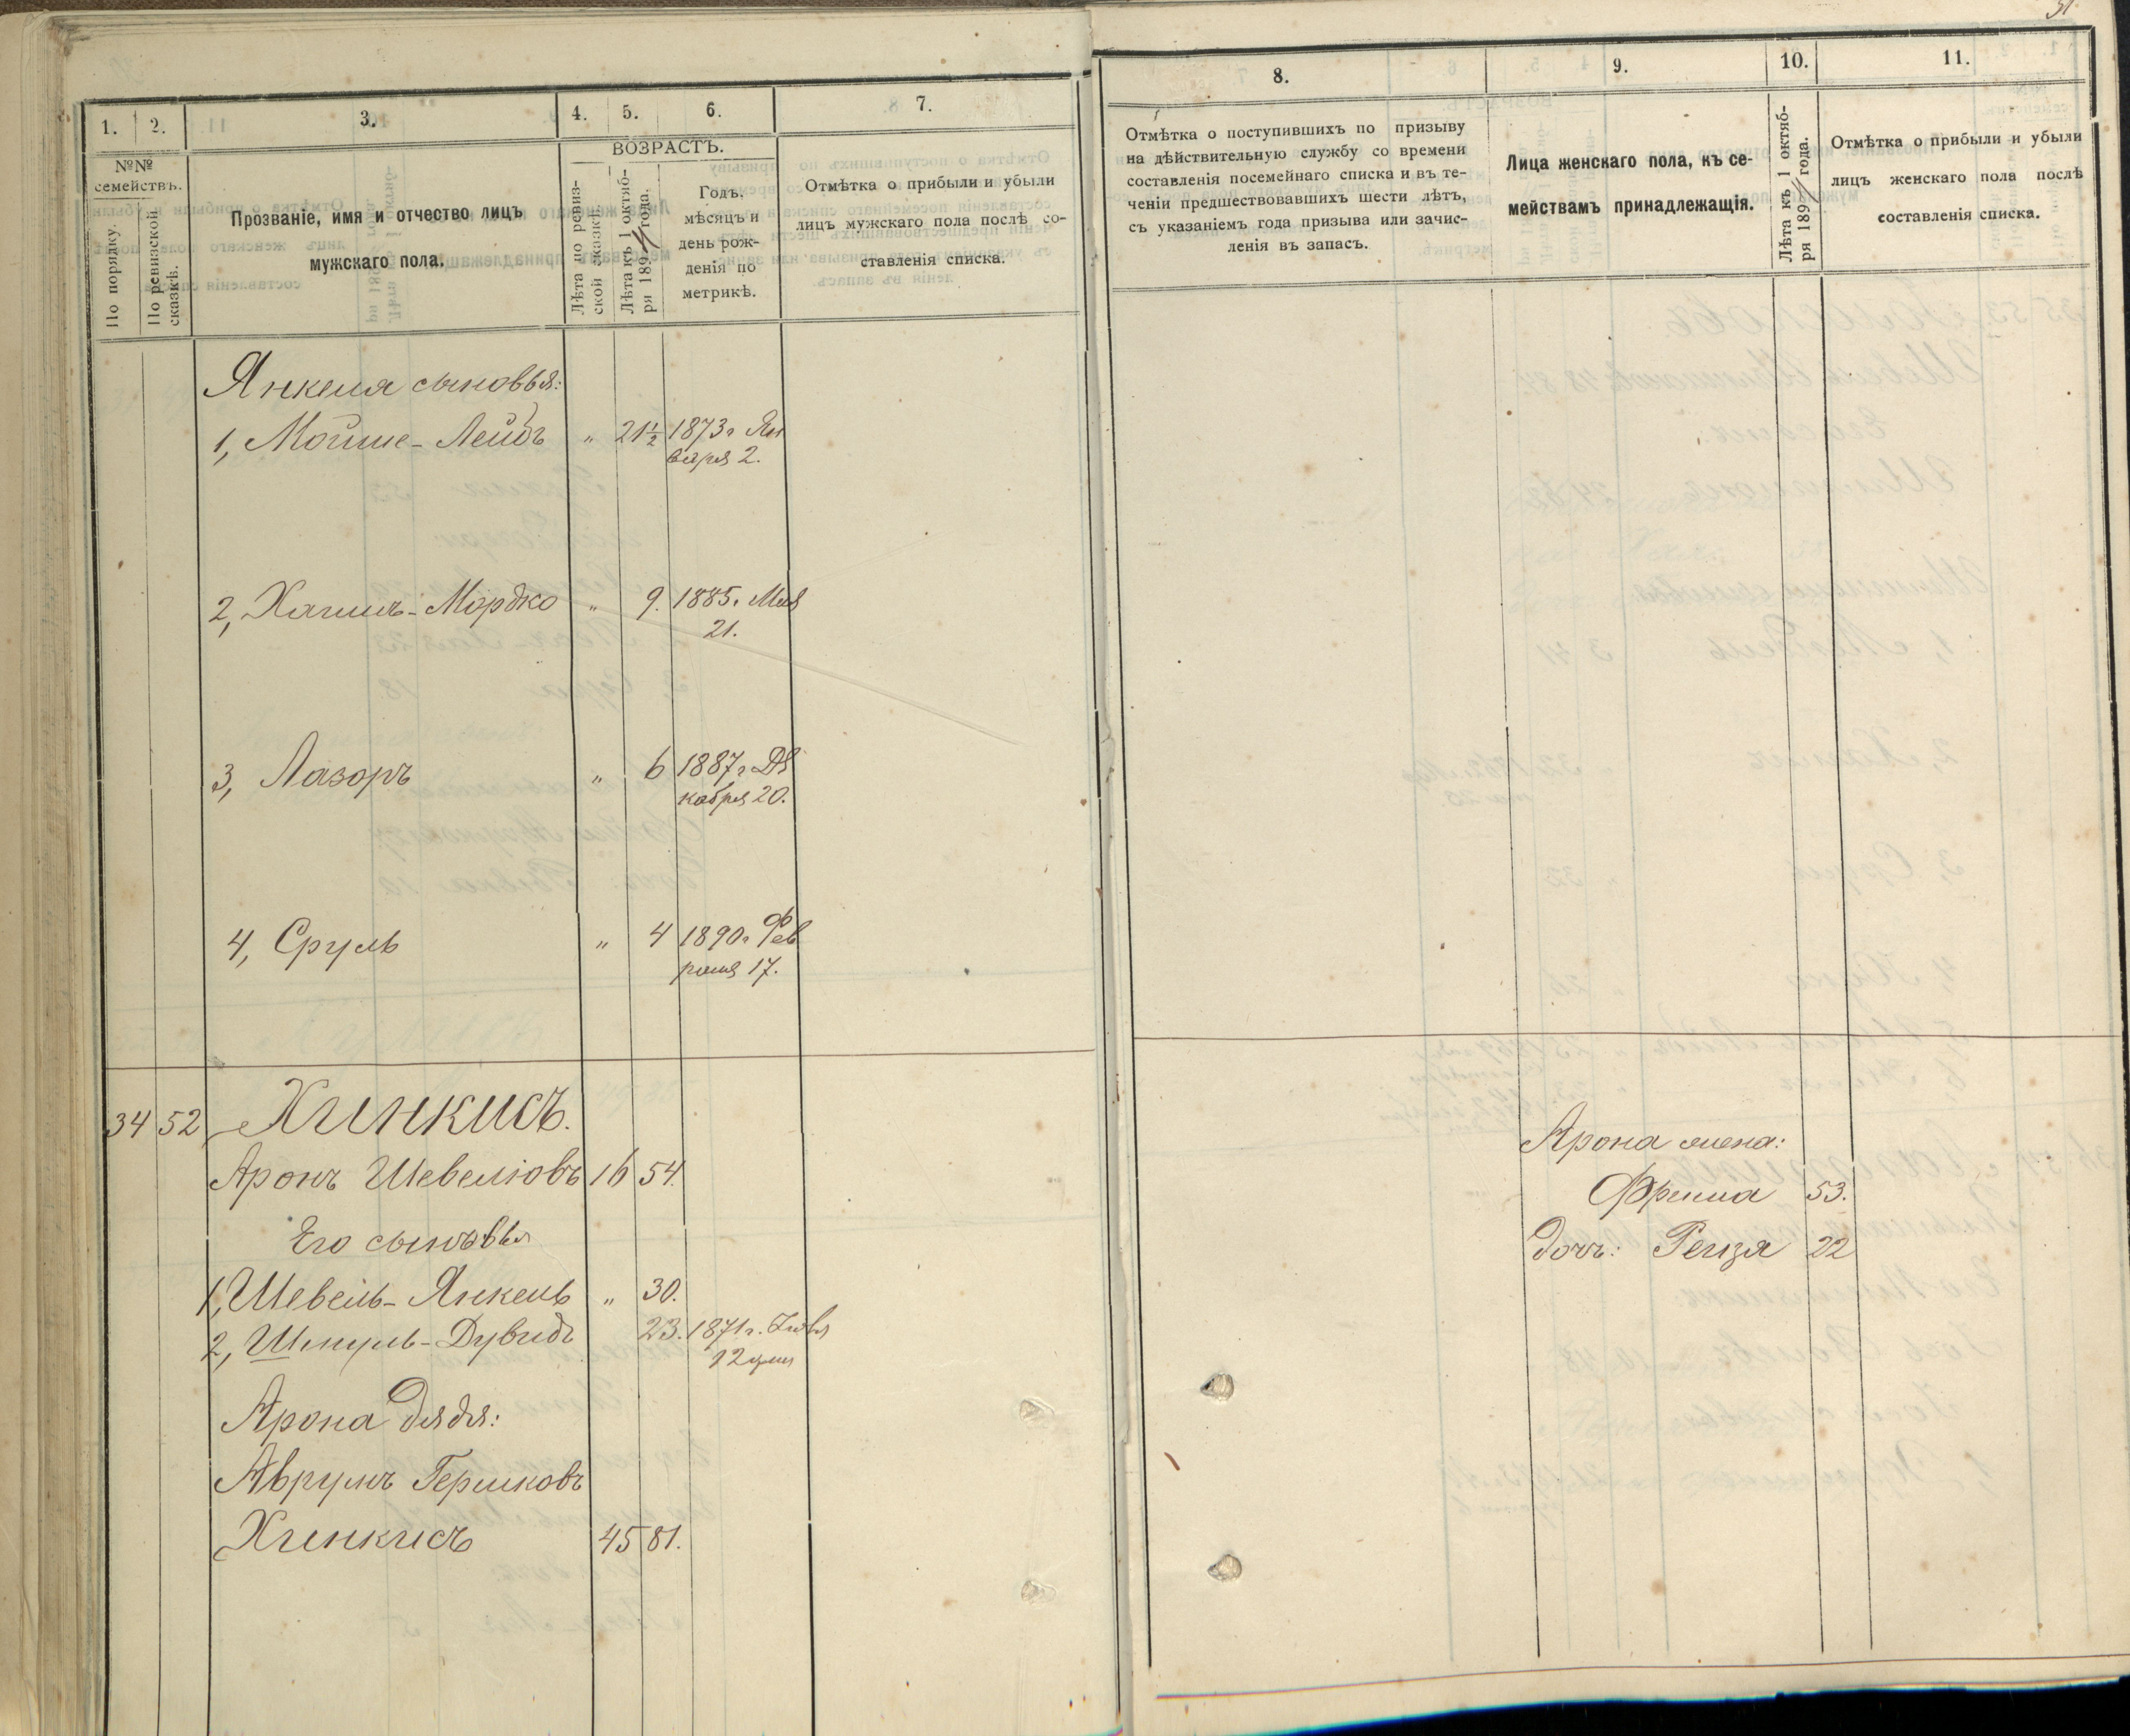 1.
2.
3.
4.
5.
6.
7.
№№
семействъ.
По порядку.
По ревизской
сказкѣ.
Прозваніе, имя и отчество лицъ
мужскаго пола.
ВОЗРАСТЪ.
Лѣта по ревиз-
ской сказкѣ.
Лѣта къ 1 октяб-
ря 1894 года.
Годъ,
мѣсяцъ и
день рож-
денія по
метрикѣ.
Отмѣтка о прибыли и убыли
лицъ мужскаго пола послѣ со-
ставленія списка.
Янкеля сыновья:
1, Мойше-Лейбъ " 21½ 1873г Ян
варя 2.
2, Хаимъ-Мордко " 9. 1885г Мая
21.
3, Лазоръ " 6 1887г Де
кабря 20.
4, Сруль " 4 1890г Фев
раля 17.
34 52 Хинкисъ.
Аронъ Шевелiовъ 16 54.
Его сыновья
1, Шевель-Янкель " 30.
2, Шмуль-Дувидъ 23. 1871г.
12
Арона дядя:
Аврумъ Гершковъ
Хинкисъ 45 81.
8.
9.
10.
11.
Отмѣтка о поступившихъ по призыву
на дѣйствительную службу со времени
составленія посемейнаго списка и въ те-
ченіи предшествовавшихъ шести лѣтъ,
съ указаніемъ года призыва или зачис-
ленія въ запасъ.
Лица женскаго пола, къ се-
мействамъ принадлежащія.
Лѣта къ 1 октяб-
ря 1894 года.
Отмѣтка о прибыли и убыли
лицъ женскаго пола послѣ
составленія списка.
Арона жена:
Фрима 53.
Дочь: Рейзя 22